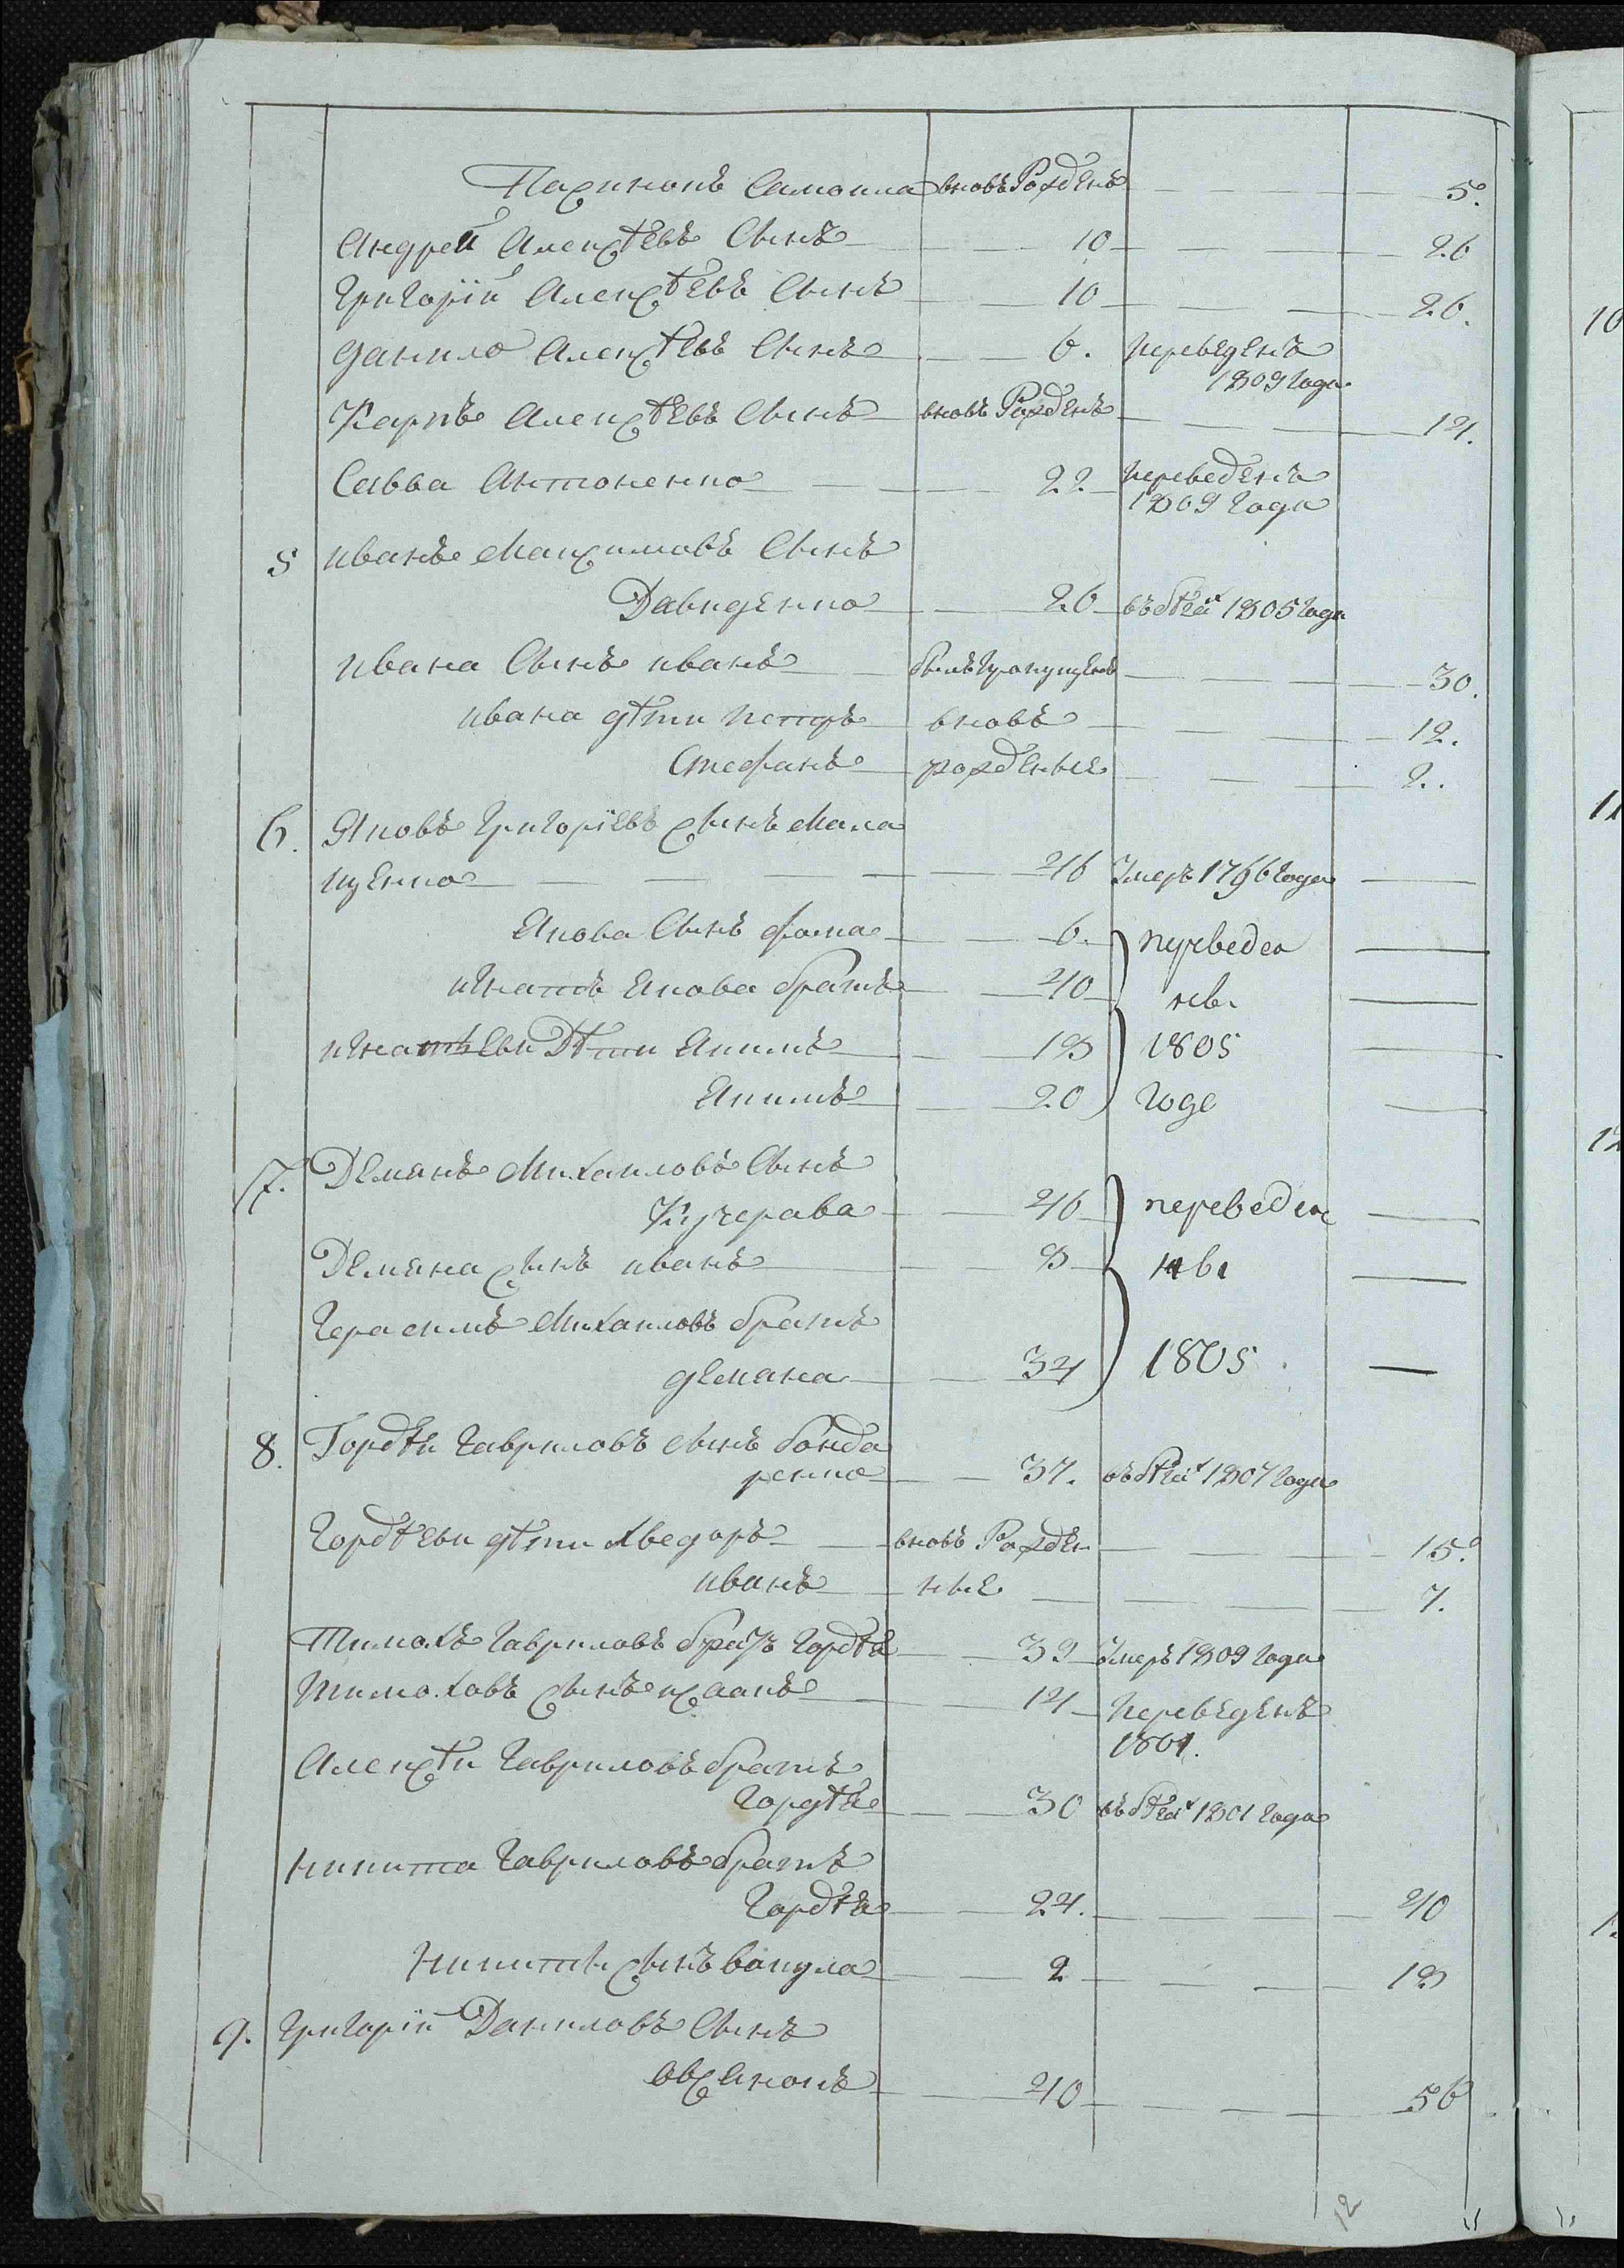 Пасинокъ Самоила вновь Рожденъ 5.
Андрей Алексѣевъ Сынъ 10 26
Григорій Алексѣевъ Сынъ 10 26.
Данило Алексѣевъ Сынъ 6. переведенъ
1809 года
Карпъ Алексѣевъ Сынъ вновь Рожденъ 14.
Савва Антоненко 22 переведенъ
1809 года
5 иванъ Максимовъ Сынъ
Давиденко 26 въ бѣгах 1805 года
ивана Сынъ иванъ былъ пропущенъ 30.
ивана дѣти петръ вновь 12.
Стефанъ рожденые 2.
6. Яковъ Григоріевъ сынъ Мака
Умеръ 1796 года
46
Якова Сынъ фома 6. переведе
игнатъ Якова братъ 40 ны
игнатьеви Дѣти Якимъ 18 1805
Якимъ 20 годе
7. Демянъ Михаиловъ Сынъ
Кучерава 46 переведе
Демяна сынъ иванъ 8 ны
Герасимъ Михаиловъ братъ
демяна 34 1805
8. Гордѣи Гавриловъ сынъ бонда
ренко 37. въ бѣгах 1807 года
Гордѣеви дѣти Хведоръ вновь Рожден 15.
иванъ ные 7.
Тимохъ Гавриловъ братъ Гордѣя 39 Умеръ 1809 года
Тимоховъ сынъ исаакъ 14 переведенъ
1801.
Алексѣи Гавриловъ братъ
Гордѣя 30 въ бѣгах 1801 года
никита Гавриловъ братъ
Гордѣя 24. 40
Никиты сынъ вакула 2 18
9. Григорій Даниловъ Сынъ
40 56
12